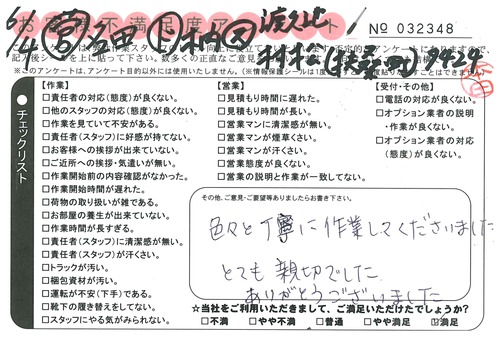 お客様不満足度アンケート
No 032348
6/4
記入後シールを上に貼って下さい。
※このアンケートは、アンケート目的以外には使用いたしません。
チェックリスト
【作業】
□責任者の対応(態度)が良くない。
□他のスタッフの対応(態度)が良くない。
□作業を見ていて不安がある。
□責任者(スタッフ)に好感が持てない。
□お客様への挨拶が出来ていない。
□ご近所への挨拶・気遣いが無い。
□作業開始前の内容確認がなかった。
□作業開始時間が遅れた。
□荷物の取り扱いが雑である。
□お部屋の養生が出来ていない。
□作業時間が長すぎる。
□責任者(スタッフ)に清潔感が無い。
□責任者(スタッフ)が汗くさい。
□トラックが汚い。
□梱包資材が汚い。
□運転が不安(下手)である。
□靴下の履き替えをしてない。
□スタッフにやる気がみられない。
【営業】
□見積もり時間に遅れた。
□見積もり時間が長い。
□営業マンに清潔感が無い。
□営業マンが煙草くさい。
□営業マンが汗くさい。
□営業態度が良くない。
□営業の説明と作業が一致してない。
【受付・その他】
□電話の対応が良くない。
□オプション業者の説明・作業が良くない。
□オプション業者の対応(態度)が良くない。
その他、ご意見・ご要望等ありましたらお書き下さい。
色々と丁寧に作業してくださいました
とても親切でした
ありがとうございました
☆当社をご利用いただきまして、ご満足いただけたでしょうか?
□不満 □やや不満 □普通 □やや満足 ☑満足